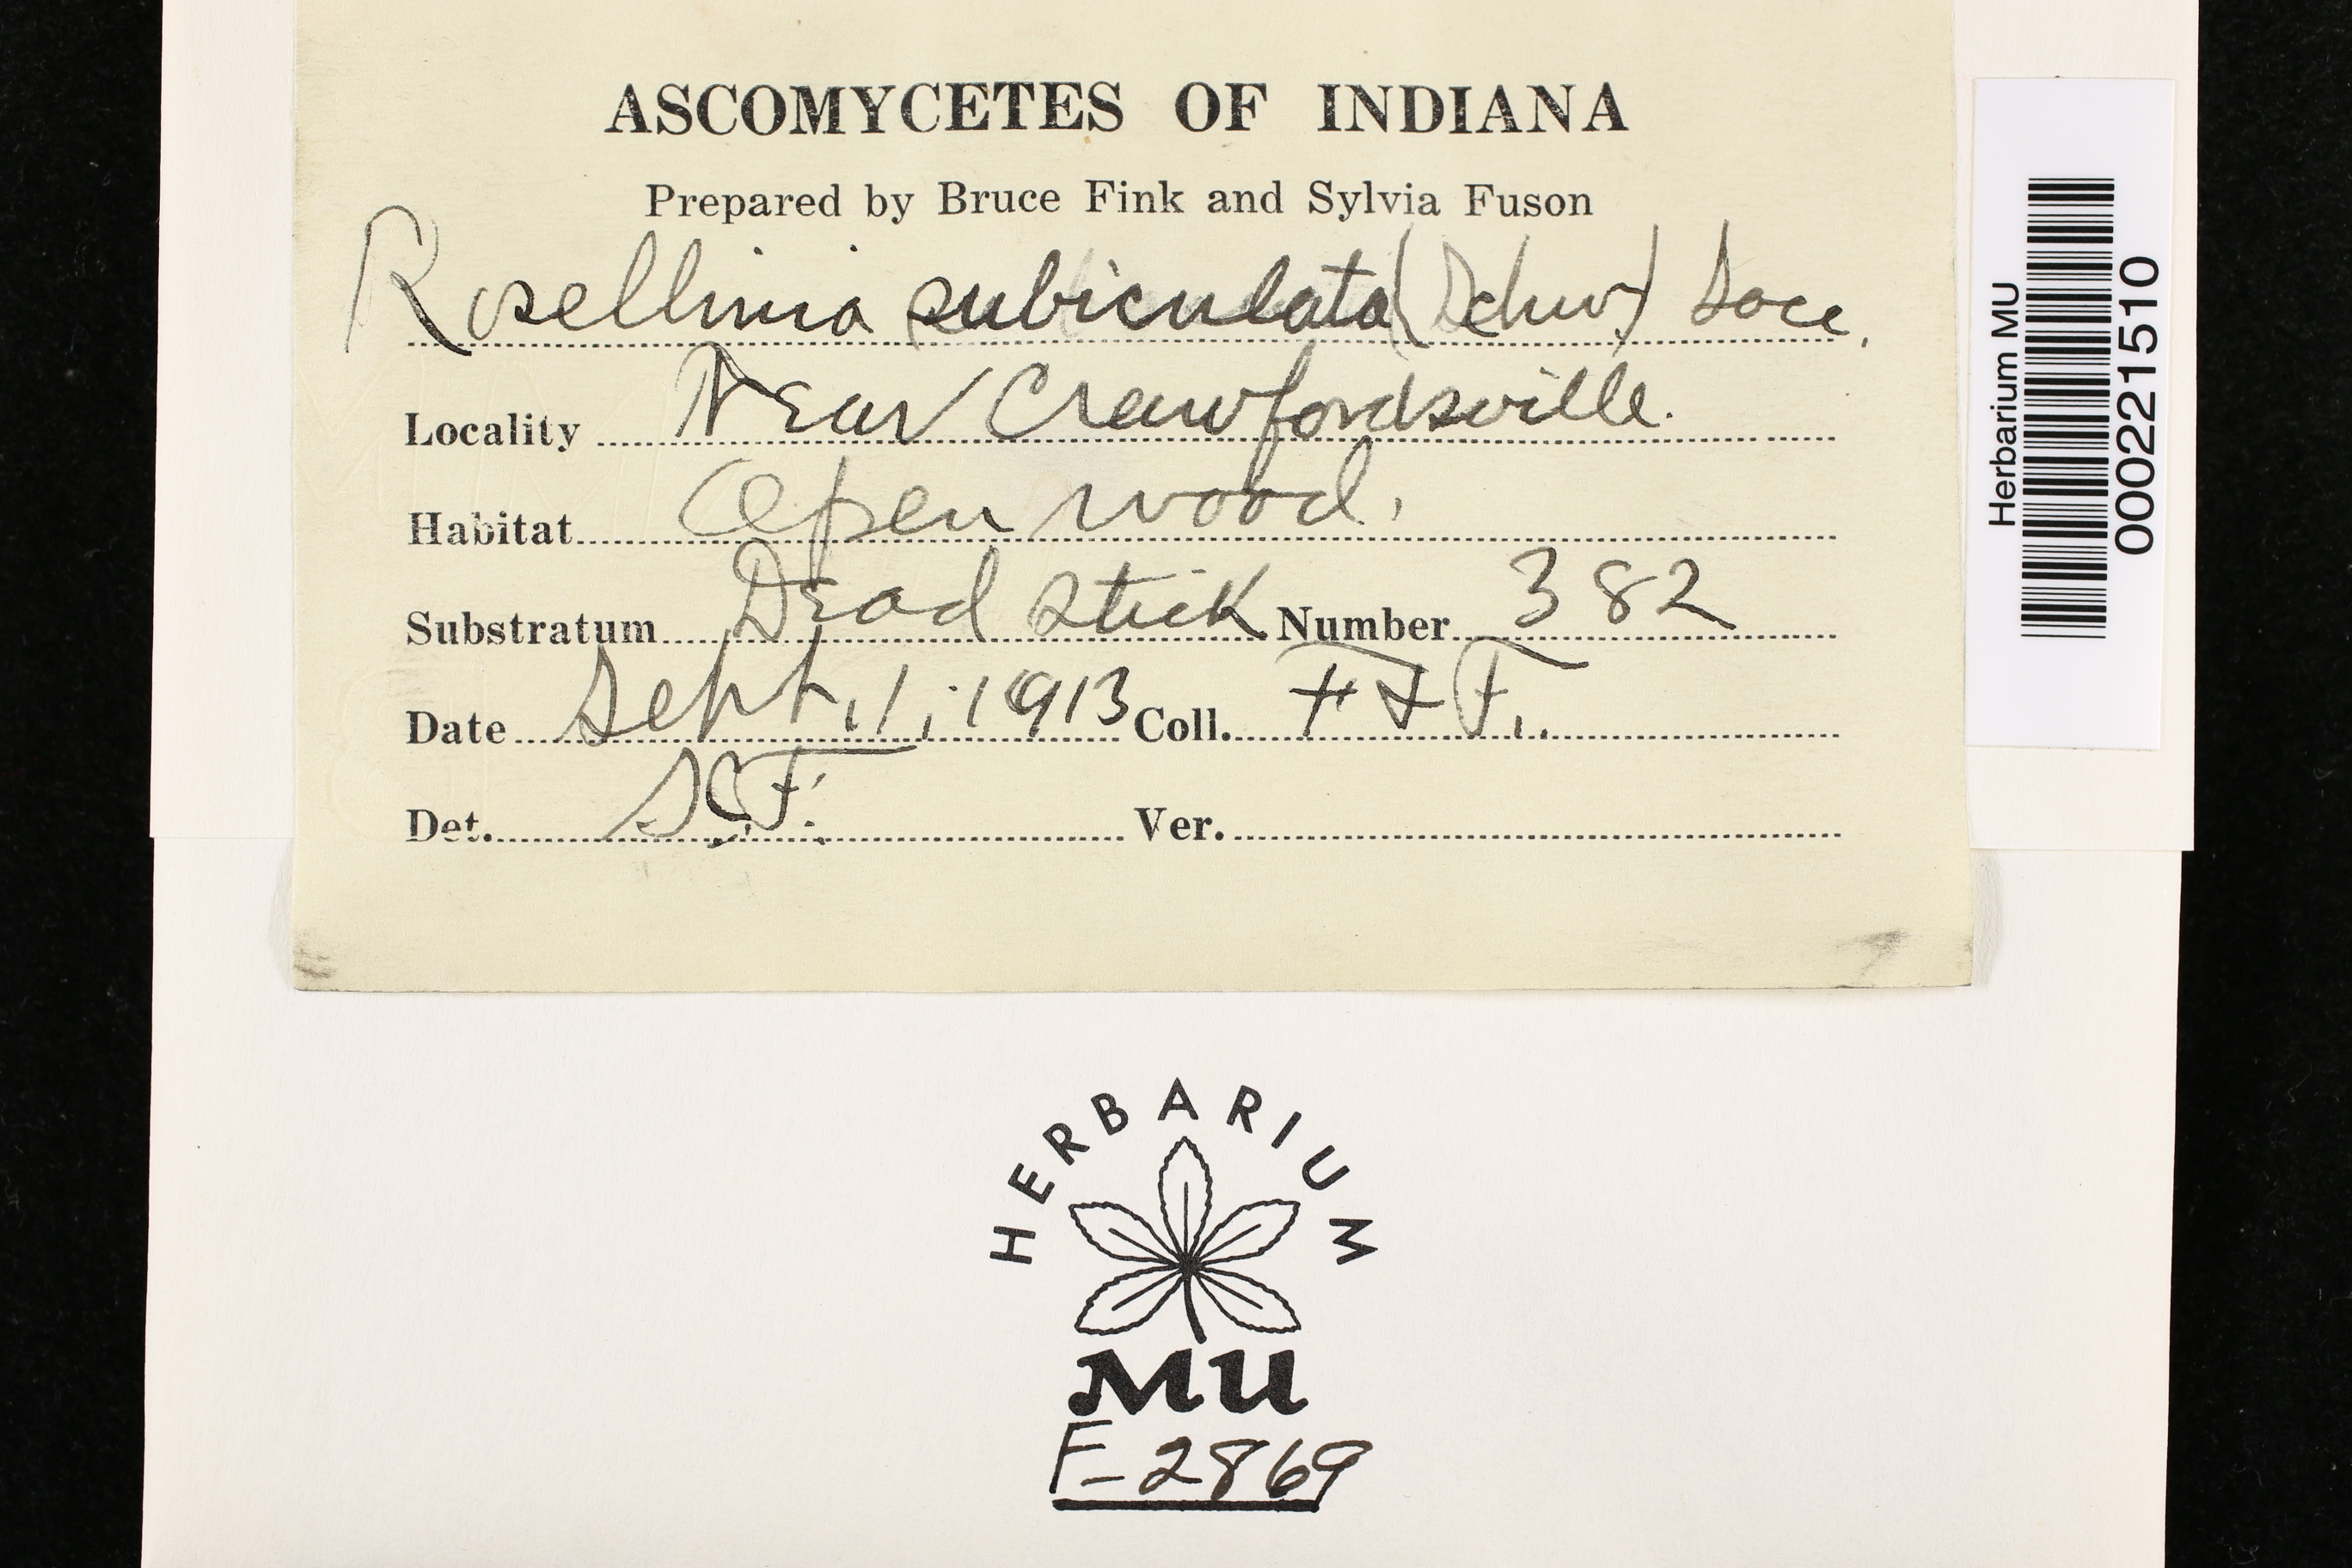 ASCOMYCETES OF INDIANA
Prepared by Bruce Fink and Sylvia Fuson
Rosellinia subiculata (Schw) Sacc.
Locality Near Crawfordsville.
Habitat Open wood.
Substratum Dead stick Number 382
Date Sept. 1, 1913 Coll. F & F.
Det. S.C.F. Ver.
Herbarium MU
000221510
HERBARIUM
MU
F-2869